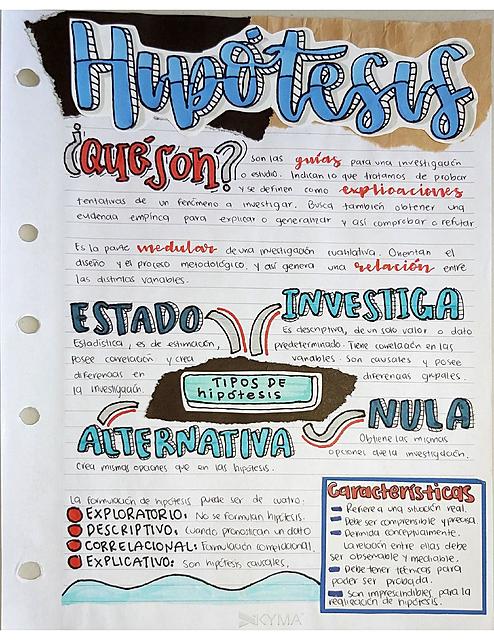 Hipótesis
¿Qué son?
son las guías para una investigación
o estudio. Indican lo que tratamos de probar
y se definen como explicaciones
tentativas de un fenómeno a investigar. Busca también obtener una
evidencia empírica para explicar o generalizar y así comprobar o refutar
Es la parte medular de una investigación cualitativa. Orientan el
diseño y el proceso metodológico, y así genera una relación entre
las distintas variables.
ESTADO
Estadística, es de estimación,
posee correlación y crea
diferencias en
la investigación.
INVESTIGA
Es descriptiva, de un solo valor o dato
predeterminado. Tiene correlación en las
variables. Son causales y posee
diferencias grupales.
TIPOS DE
hipótesis
ALTERNATIVA
Crea mismas opciones que en las hipótesis.
NULA
Obtiene las mismas
opciones que la investigación.
La formulación de hipótesis puede ser de cuatro:
EXPLORATORIO: No se formulan hipótesis.
DESCRIPTIVO: Cuando pronostican un dato
CORRELACIONAL: Formulación correlacional.
EXPLICATIVO: Son hipótesis causales,
Características
Refiere a una situación real.
Debe ser comprensible y precisa
Dermida conceptualmente.
La relación entre ellas debe
ser observable y mediable.
Debe tener técnicas para
poder ser probada.
Son imprescindibles para la
realización de hipótesis.
KYMA